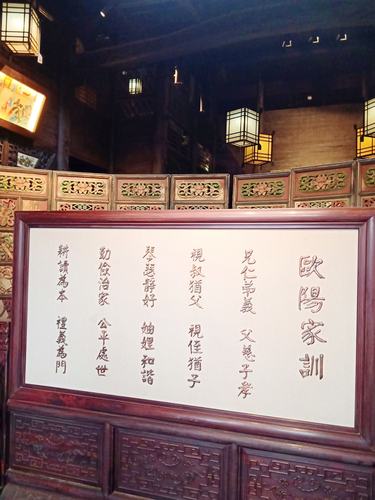 歐陽家訓
兄仁弟義 父慈子孝
視叔猶父 視侄猶子
琴瑟靜好 妯娌和諧
勤儉治家 公平處世
耕讀為本 禮義為門